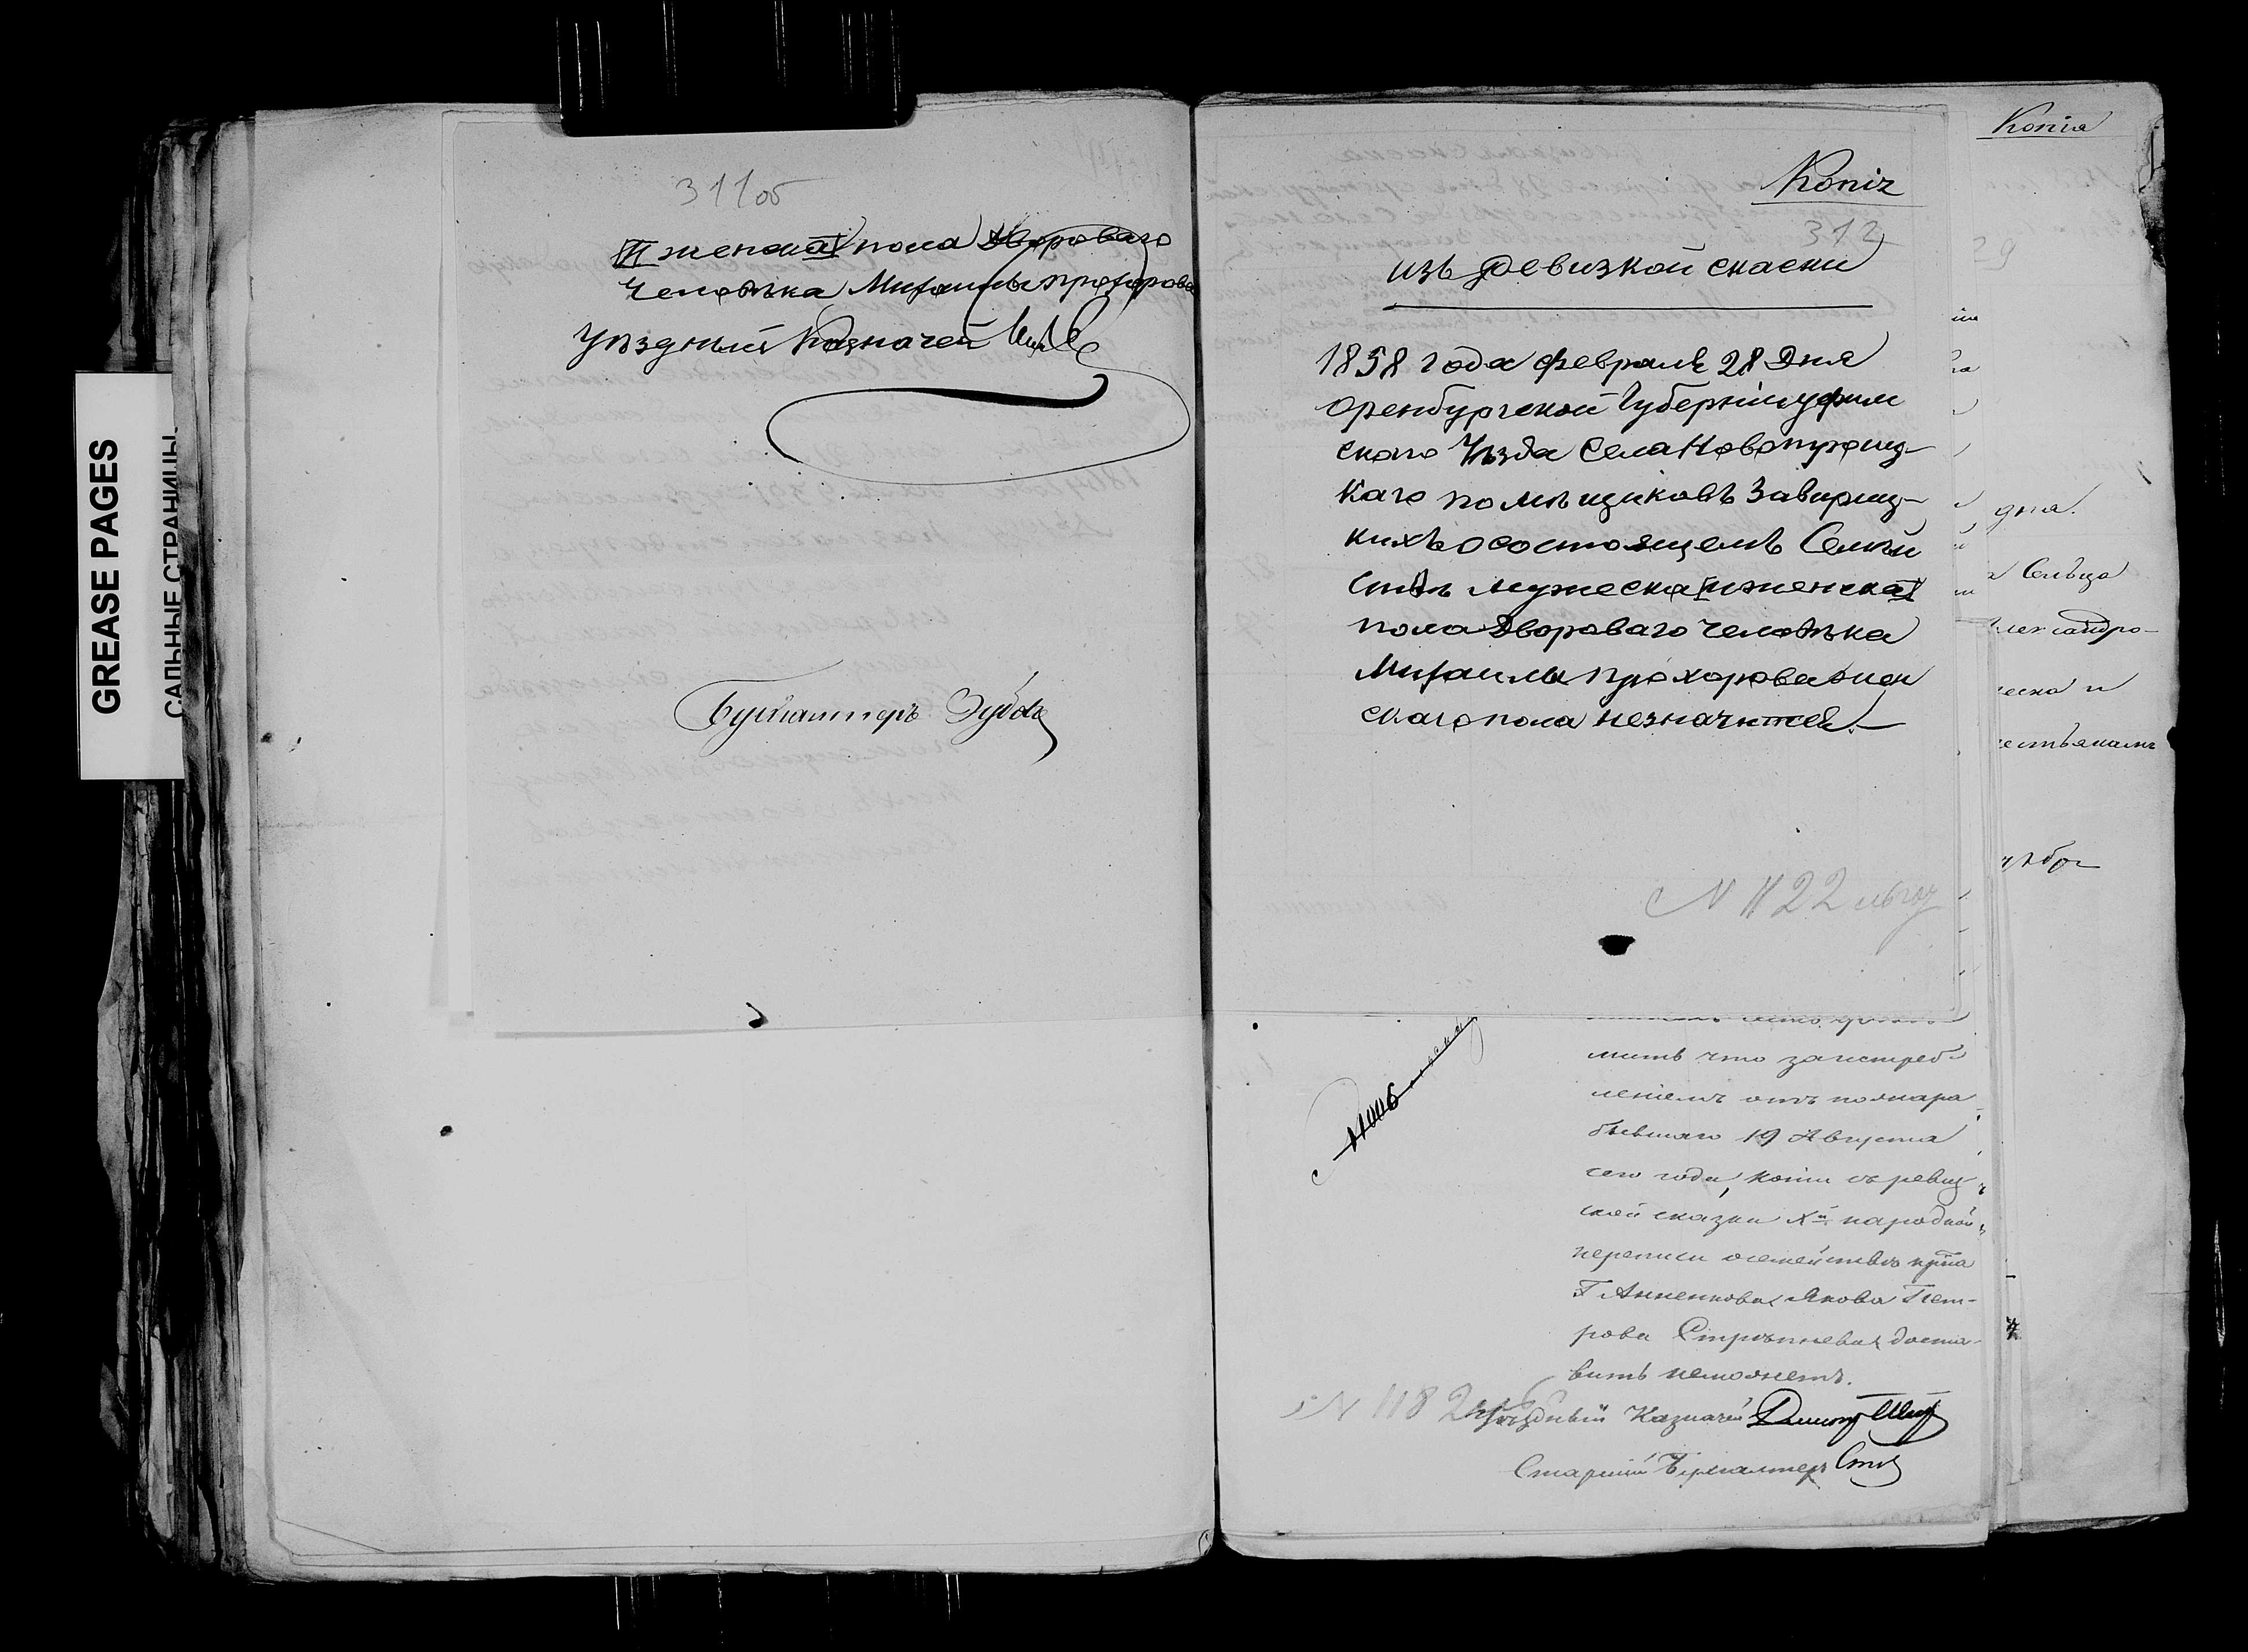 GREASE PAGES
САЛЬНЫЕ СТРАНИЦЫ
311об
и женска пола Двороваго
человѣка Михаилы Прохорова
уѣздный казначей
Бухгалтеръ
Копія
312
изъ Ревизкой скаски
1858 года февраля 28 Дня
Оренбургской Губерніи уфим
скаго Уѣзда Села Новотроиц-
каго помѣщиковъ Завариц-
кихъ о состоящемъ Семѣй
ствѣ мужеска и женска
пола Двороваго человѣка
Михаилы Прохорова женс
скаго пола незначится
N 1122
мить что за истреб-
леніемъ отъ пожара
бывшаго 19 Августа
сего года, копіи съ ревиз-
ской сказки Xй народной
переписи о семействѣ крна
Г Анненкова Якова Пет-
рова доста-
вить неможетъ.
N 1182
уѣздный Казначей
Старшій Бухгалтеръ
Копія
дня.
Сельца
Александро-
ческа и
естьянамъ